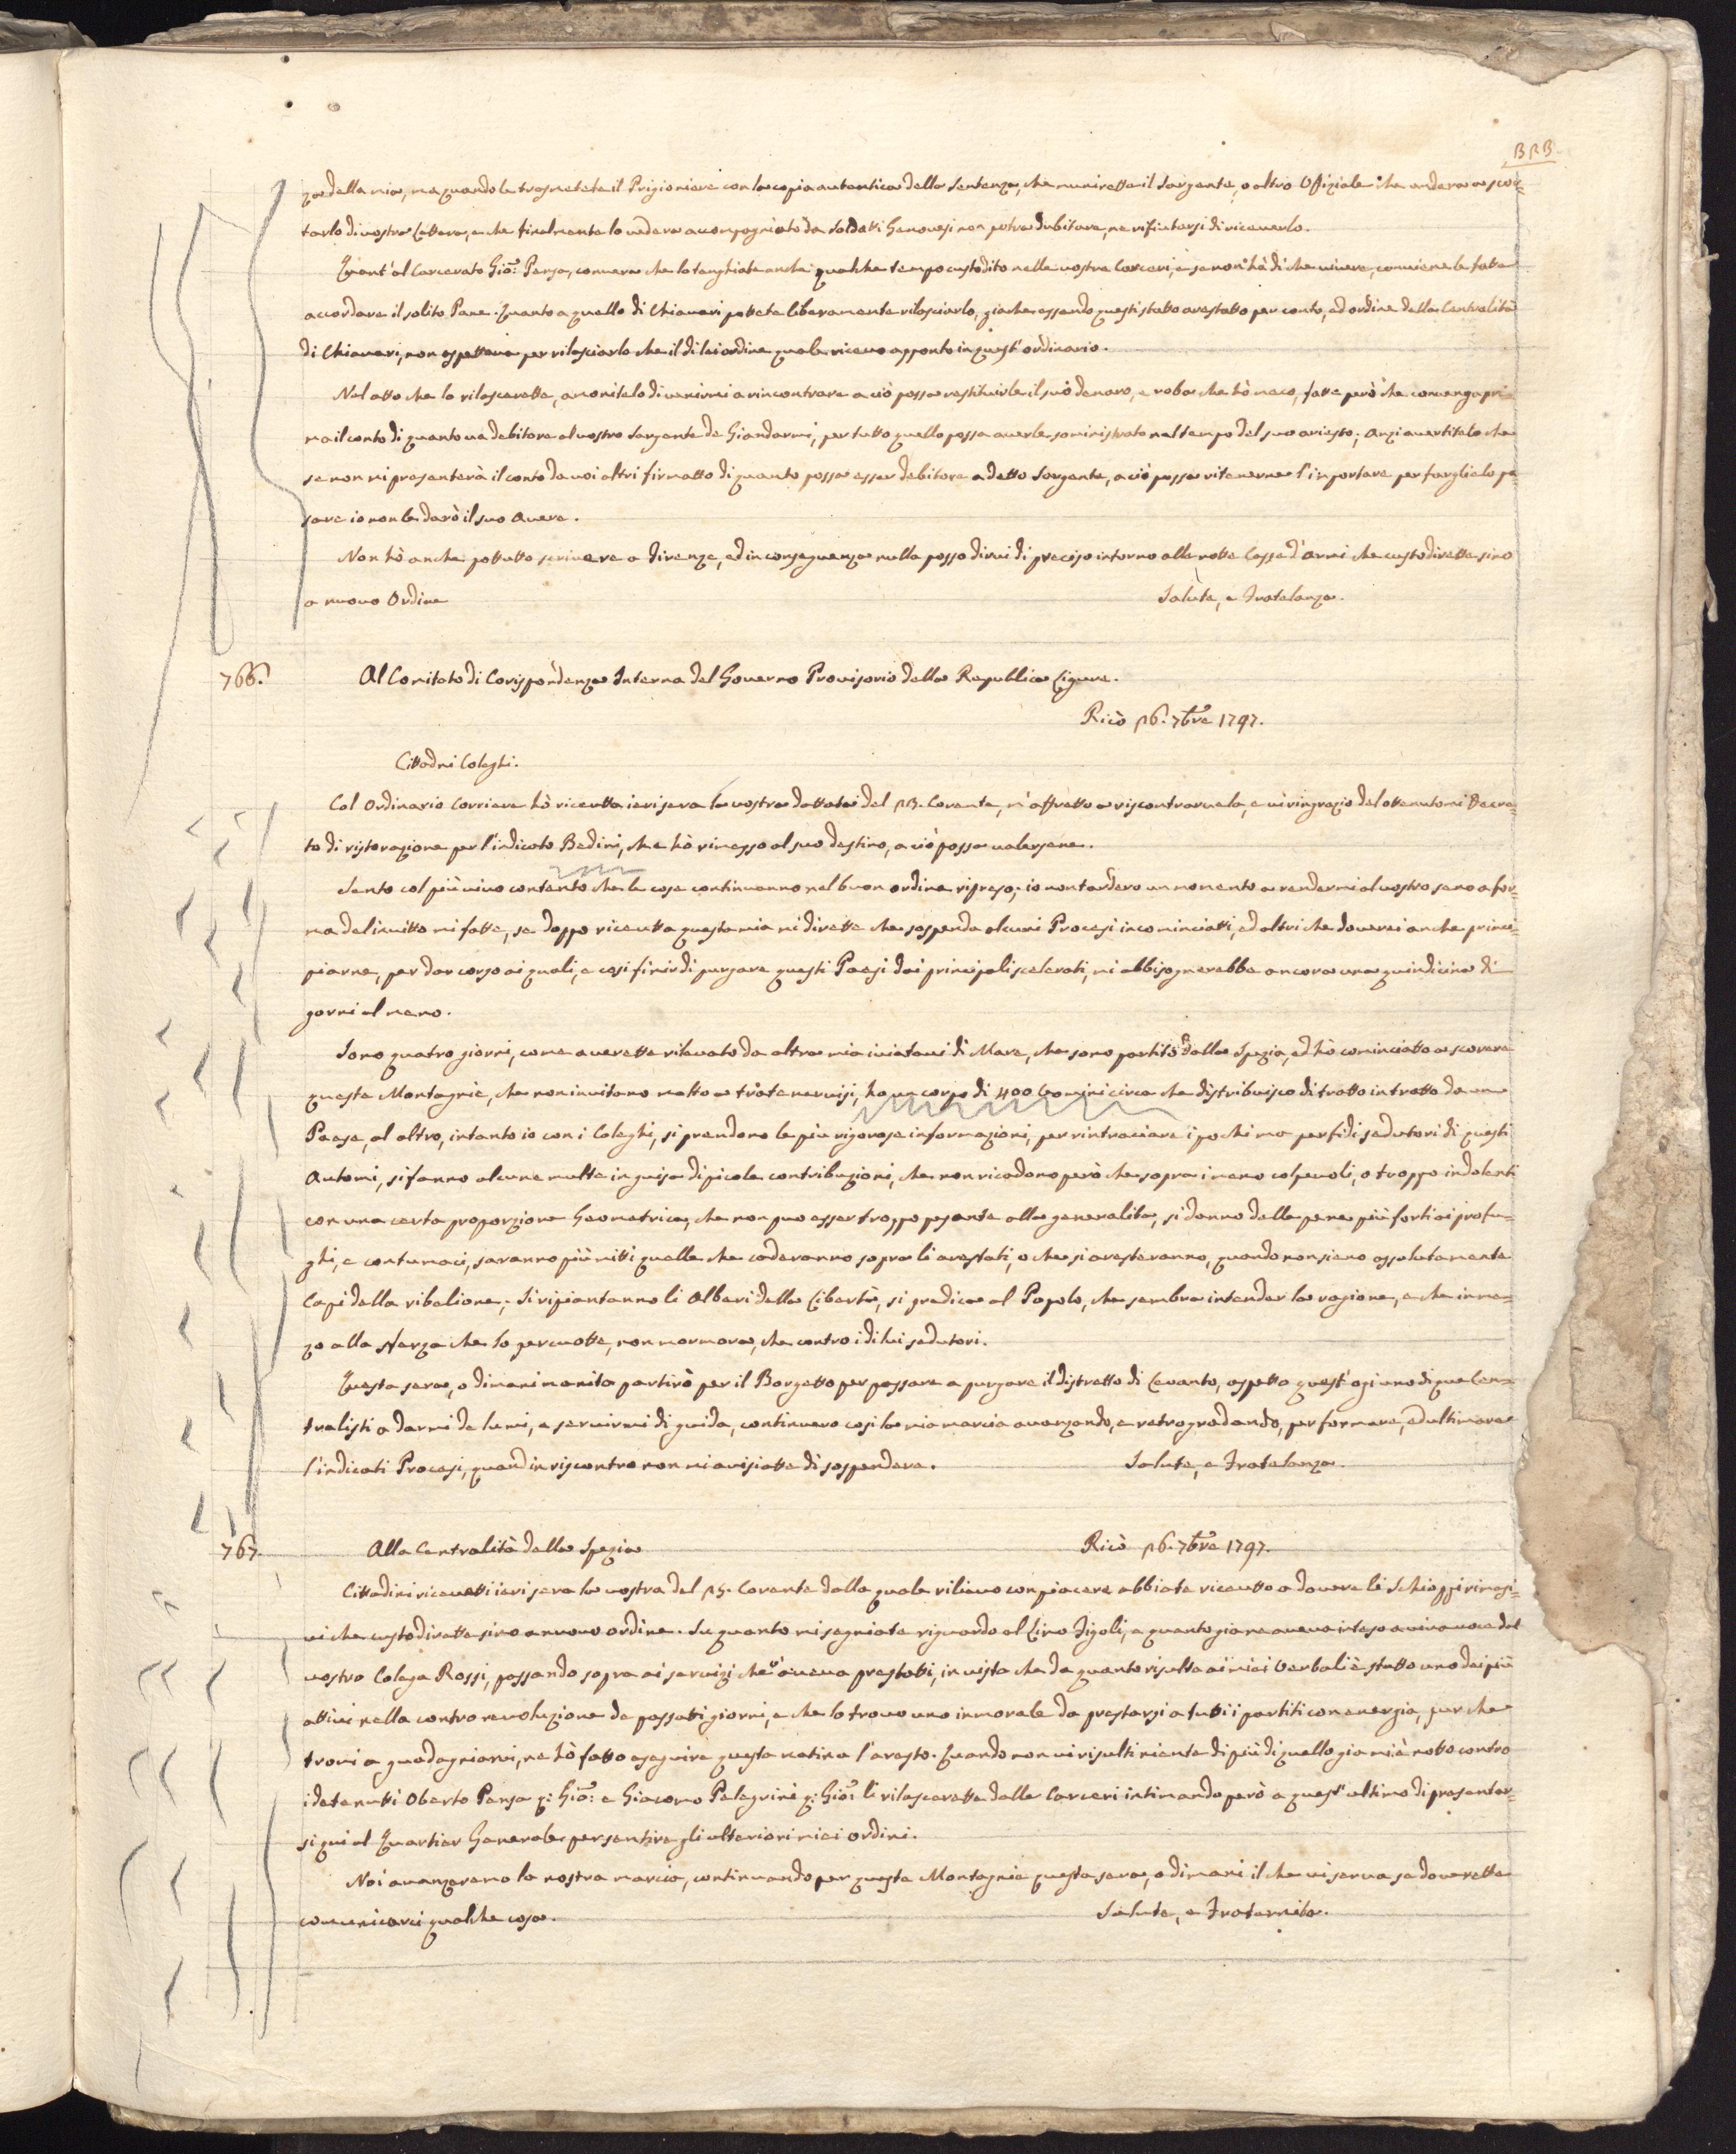 BRB
za della mia, ma quando le trasmetete il Prigioniere con la copia autentica della Sentenza, che munirette il Sargente, o altro Offiziale che andera a scor=
tarlo di vostra Lettera, e che finalmente lo vedera accompagniato da Soldatti Genovesi non potra dubitare, ne rifiutarsi di riceverlo.
Quant'al Carcerato Gio: Pensa, convera che lo tenghiate anche qualche tempo custodito nelle vostre Carceri, e se non hà di che vivere, conviene le fate
accordare il solito Pane. Quanto a quello di Chiavari pottete liberamente rilasciarlo, giache essendo questi statto arestatto per conto, ed ordine della Centralità
di Chiavari, non aspettavo per rilasciarlo che il di lei ordine quale ricevo apponto in quest'ordinario.
Nel atto che lo rilascerette, amonitelo di venirmi a rincontrare a ciò possa restituirle il suò denaro, e roba che hò meco, fatte però che convenga pri=
ma il conto di quanto va debitore al vostro Sargente de Giandarmi, per tutto quello possa averle soministrato nel tempo del suo ariesto; anzi avertitelo che
se non mi presenterà il conto da voi altri firmatto di quanto possa esser debitore a detto Sargente, a ciò possa ritenerne l'importare per farglielo pa
sare io non le darò il suo Avere.
Non hò anche pottutto scrivere a Firenze, ed in conseguenza nulla posso dirvi di preciso intorno alle notte Casse d'Armi che custodirette sino
a nuovo Ordine
Salute, e Fratelanza.
766.
Al Comitato di Corispondenza Interna del Governo Provisorio della Republica Ligure.
Ricò 26. 7bre 1797.
Cittadni Coleghi.
Col Ordinario Corriere hò ricevutta ieri sera la vostra dattata del 23. Corente, m'affretto a riscontrarvela, e vi ringrazio del ottenutomi Decre=
to di ristorazione per l'indicato Bedini, che hò rimesso al suo destino, a ciò possa valersene.
Sento col più vivo contento che le cose continuanno nel buon ordine ripreso; io non tardero un momento a rendermi al vostro seno a for=
ma del invitto mi fatte, se doppo ricevutta questa mia mi dirette che sospenda alcuni Procesi incominciatti, ed altri che doverei anche princi=
piarne, per dar corso ai quali, e cosi finir di purgare questi Paesi dai principali scelerati, mi abbisognerebbe ancora una quindicina di
giorni al meno.
Sono quatro giorni, come averette rilevato da altra mia inviatavi di Mare, che sono partito dalla Spezia, ed hò cominciatto a scorere
queste Montagnie, che non invitano molto a tratenervisi, ho un corpo di 400 Uomini circa che distribuisco di tratto in tratto da un
Paese, al altro, intanto io con i Coleghi, si prendono le più rigorose informazioni, per rintraciare i pochi ma perfidi sedutori di questi
Automi, si fanno alcune multe in guisa di picole contribuzioni, che non ricadono però che sopra i meno colpevoli, o troppo indolenti
con una certa proporzione Geometrica, che non puo esser troppo pesante alla generalita, si danno delle pene più forti ai profu=
ghi, e contumaci, saranno più mitti quelle che caderanno sopra li arestati, o che si aresteranno, quando non sieno assolutamente
Capi della ribelione; Si ripiantanno li Alberi della Libertà, si predica al Popolo, che sembra intender la ragione, e che in me=
zo alla sferza che lo percuotte, non mormora, che contro i di lui sedutori.
Questa sera, o dimani manita partirò per il Borgetto per passare a purgare il distretto di Levanto, aspetto quest'ogi uno di que Cen=
tralisti a darmi de lumi, e servirmi di guida, continuero cosi la mia marcia avanzando, e retrogradando, per formare, ed ultimare
l'indicati Procesi, quand'in riscontro non mi avisiatte di sospendere.
Salute, e Fratelanza.
767.
Alla Centralità della Spezia
Ricò 26. 7bre 1797.
Cittadini ricevetti ieri sera la vostra del 25. Corente dalla quale rilievo con piacere abbiate ricevutto a dovere li Schioppi rimasi=
vi che custodirette sino a nuovo ordine. Su quanto mi segniate riguardo al Lino Figoli, e quanto gia ne avevo inteso a viva voce dal
vostro Colega Rossi, passando sopra ai servizi che v'aveva prestatti, in vista che da quanto risulta ai miei Verbali è statto uno dei più
attivi nella contro revoluzione de passatti giorni, e che lo trovo uno inmorale da prestarsi a tutti i partiti con energia, pur che
trovi a guadagniarvi, ne hò fatto eseguire questa matina l'aresto. Quando non vi risulti niente di più di quello gia mi è notto contro
i detenutti Oberto Pensa q: Gio: e Giacomo Pelegrini q: Gio: li rilascerette dalle Carceri intimando però a quest'ultimo di presentar=
si qui al Quartier Generale per sentire gli ulteriori miei ordini.
Noi avanzaremo la nostra marcia, continuando per queste Montagnie questa sera, o dimani il che vi serva se doverette
comunicarci qualche cosa.
Salute, e Fraternita.